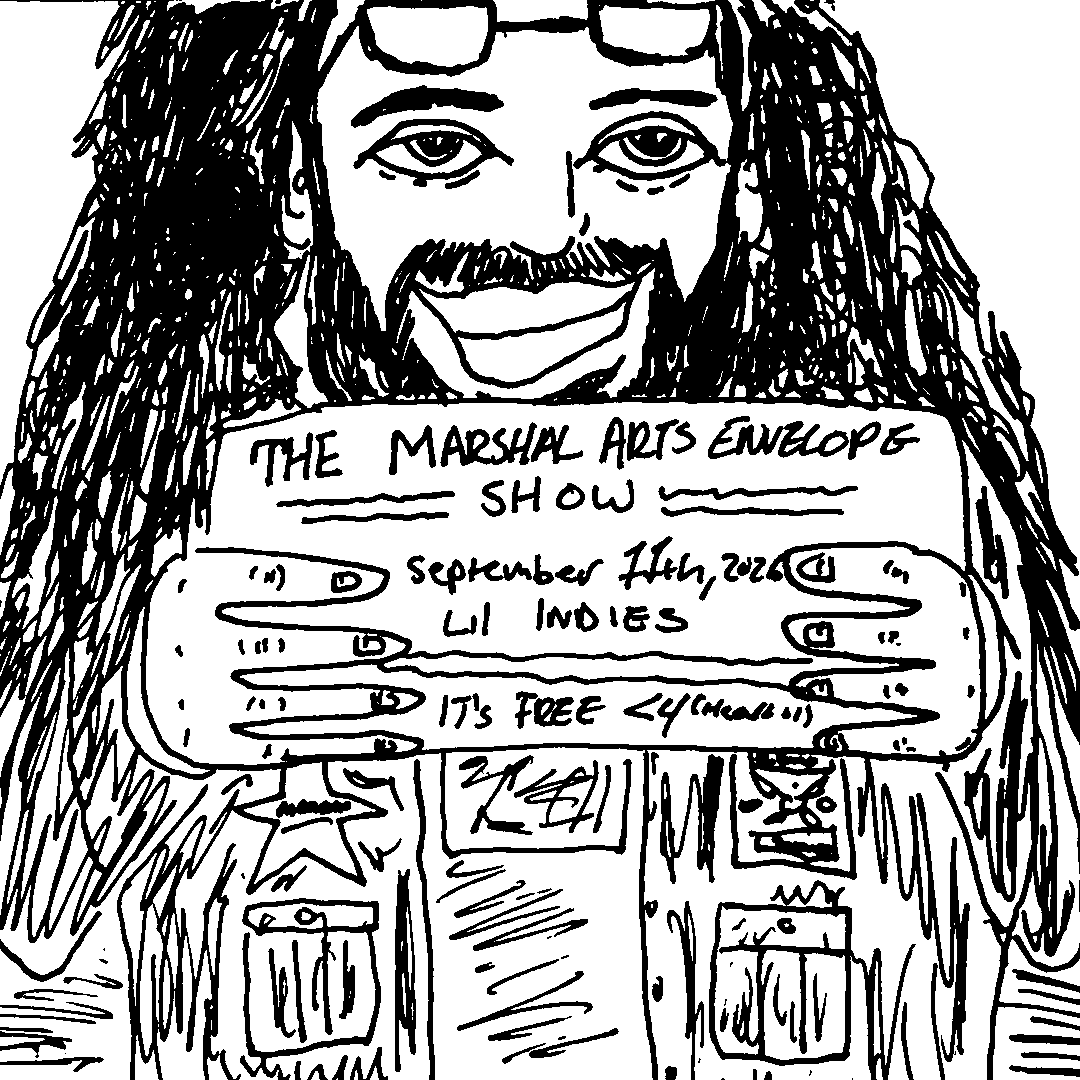 THE MARSHAL ARTS ENVELOPE
SHOW
September 11th, 2026
Lil INDIES
IT'S FREE <4